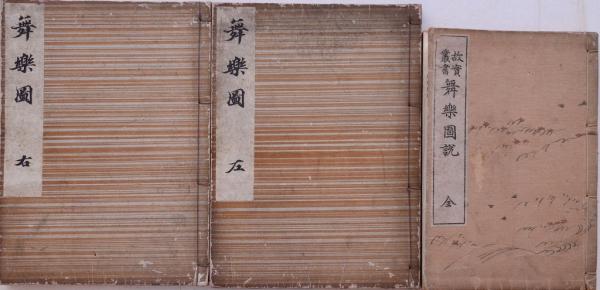 舞樂圖 右
舞樂圖 左
故實叢書
舞樂圖説 全